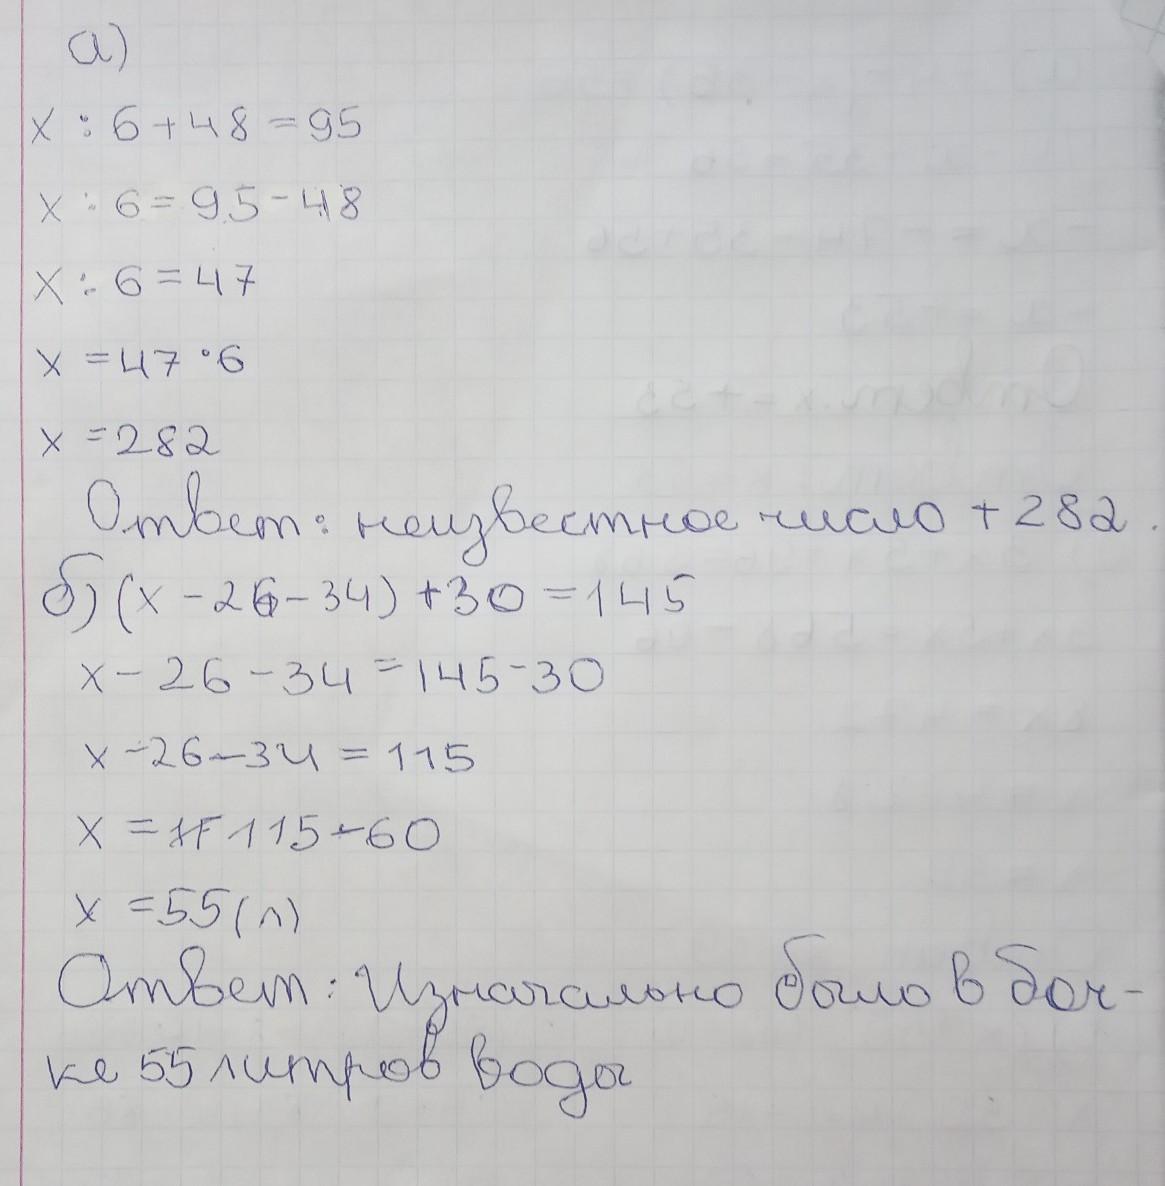 а)
x : 6 + 48 = 95
x : 6 = 95 - 48
x : 6 = 47
x = 47 · 6
x = 282
Ответ: неизвестное число + 282.
б) (x - 26 - 34) + 30 = 145
x - 26 - 34 = 145 - 30
x - 26 - 34 = 115
x = 115 - 60
x = 55 (л)
Ответ: Изначально было в боч-
ке 55 литров воды